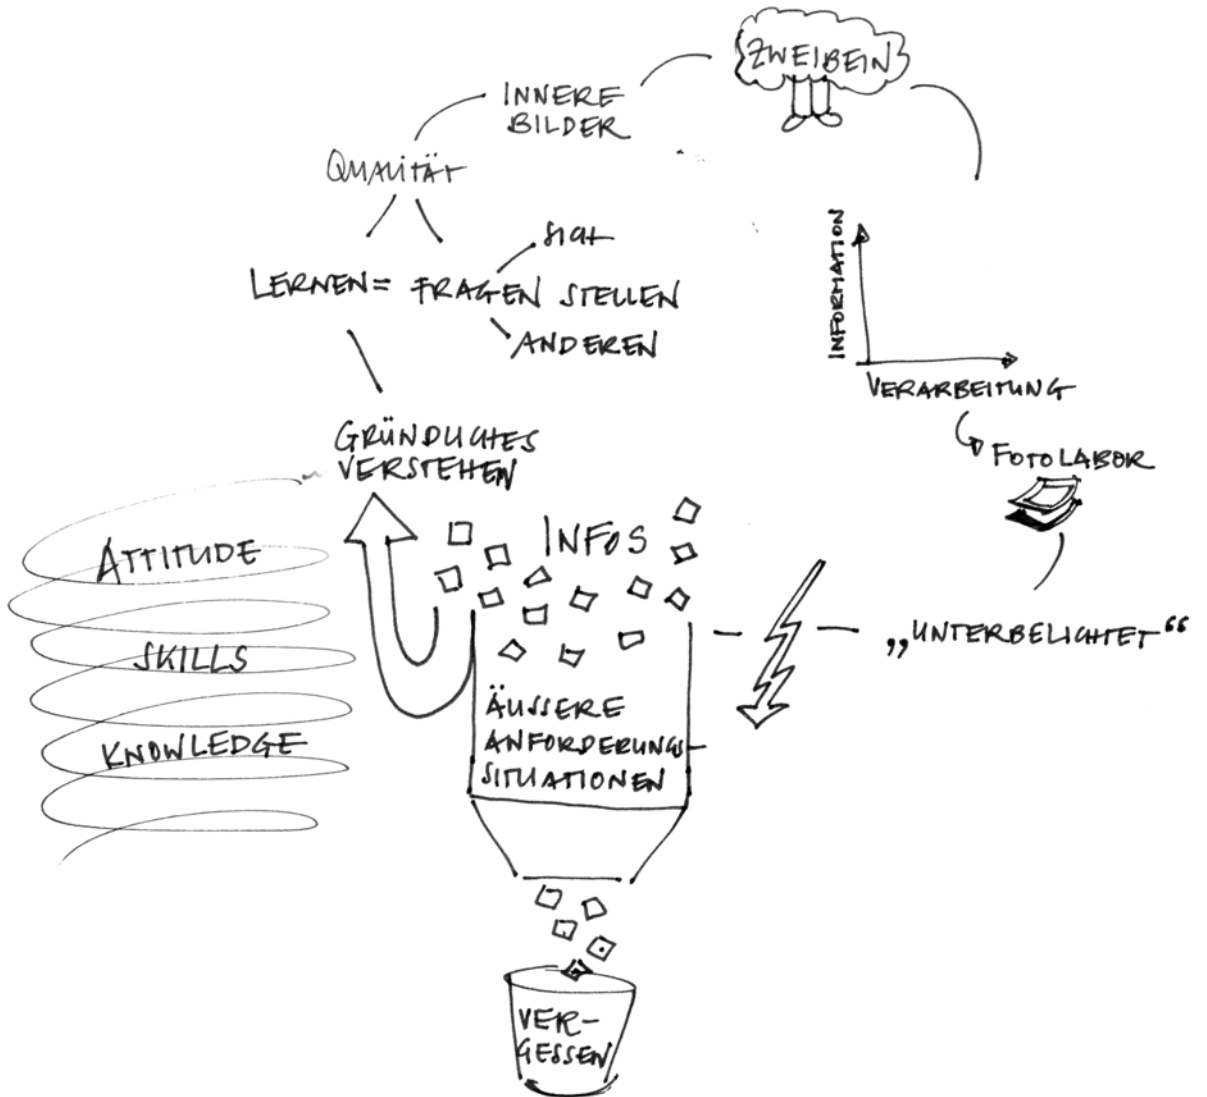 ZWEIBEIN
INNERE
BILDER
QUALITÄT
SICH
LERNEN = FRAGEN STELLEN
ANDEREN
INFORMATION
VERARBEITUNG
FOTOLABOR
GRÜNDLICHES
VERSTEHEN
INFOS
ATTITUDE
SKILLS
KNOWLEDGE
„UNTERBELICHTET“
ÄUSSERE
ANFORDERUNGS-
SITUATIONEN
VER-
GESSEN